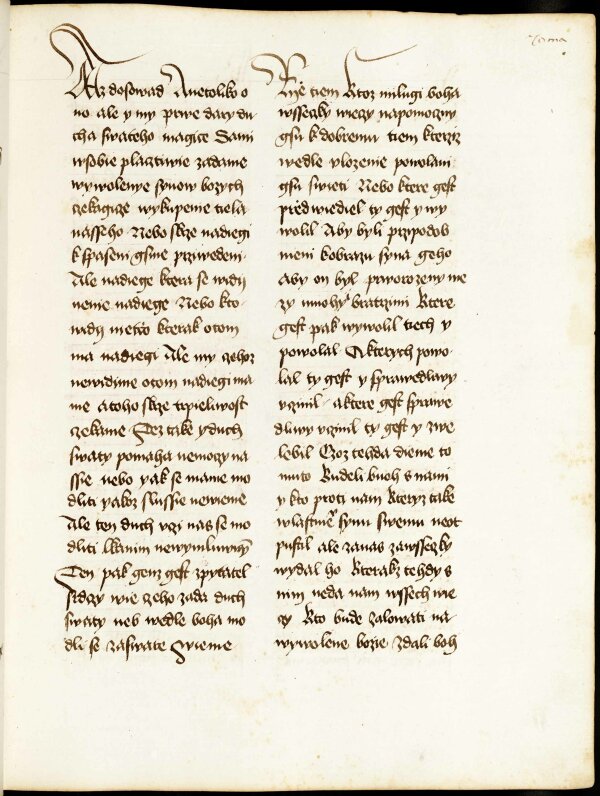 Az dosowad Anetoliko o
no ale y my prwe dary du
cha swateho magice Sami
wsobie plaztiwie zadame
wywolenye synow bozych
czekagicze wykupenie tiela
nasseho Nebo skrze nadiegi
k spaseni gsme przwedeni
Ale nadiege ktera se widy
nenie nadiege Nebo kto
widy nietco kterak otom
ma nadiegi Ale my czehoz
newidime otom nadiegi ma
me Atoho skrze trpieliwost
czekame Tez take yduch
swaty pomaha nemozy na
ssie nebo yak se mame mo
dliti yakoz slussie newieme
Ale ten duch uczi nas se mo
dliti lkanim newymluwnym
Ten pak genz gest zpytatel
srdczy wie czeho zada duch
swaty neb wedle boha mo
dli se zaswate Swieme
ze tiem ktoz milugi boha
wsseczky wieczy napomoczny
gsu k dobremu tiem kterziz
wedle ulozenie powolani
gsu swieti Nebo ktere gest
przedwiediel ty gest y wy
wolil Aby byli przypodob
nieni kobrazu syna geho
Aby on byl prworozeny me
zy mnohymi bratrzimi Ktere
gest pak wywolil tiech y
powolal A kterych powo
lal ty gest y sprawedlawy
uczinil A ktere gest sprawe
dliwy uczinil ty gest y zwe
lebil Czoz tehda dieme to
muto Budeli buoh s nami
y kto proti nam Kteryz take
wlastnie synu swemu neot
pustil ale zanas zawsseczky
wydal ho Kterakz tehdy s
nim neda nam wssech wie
czy Kto bude zalowati na
wywolene bozie zdali boh